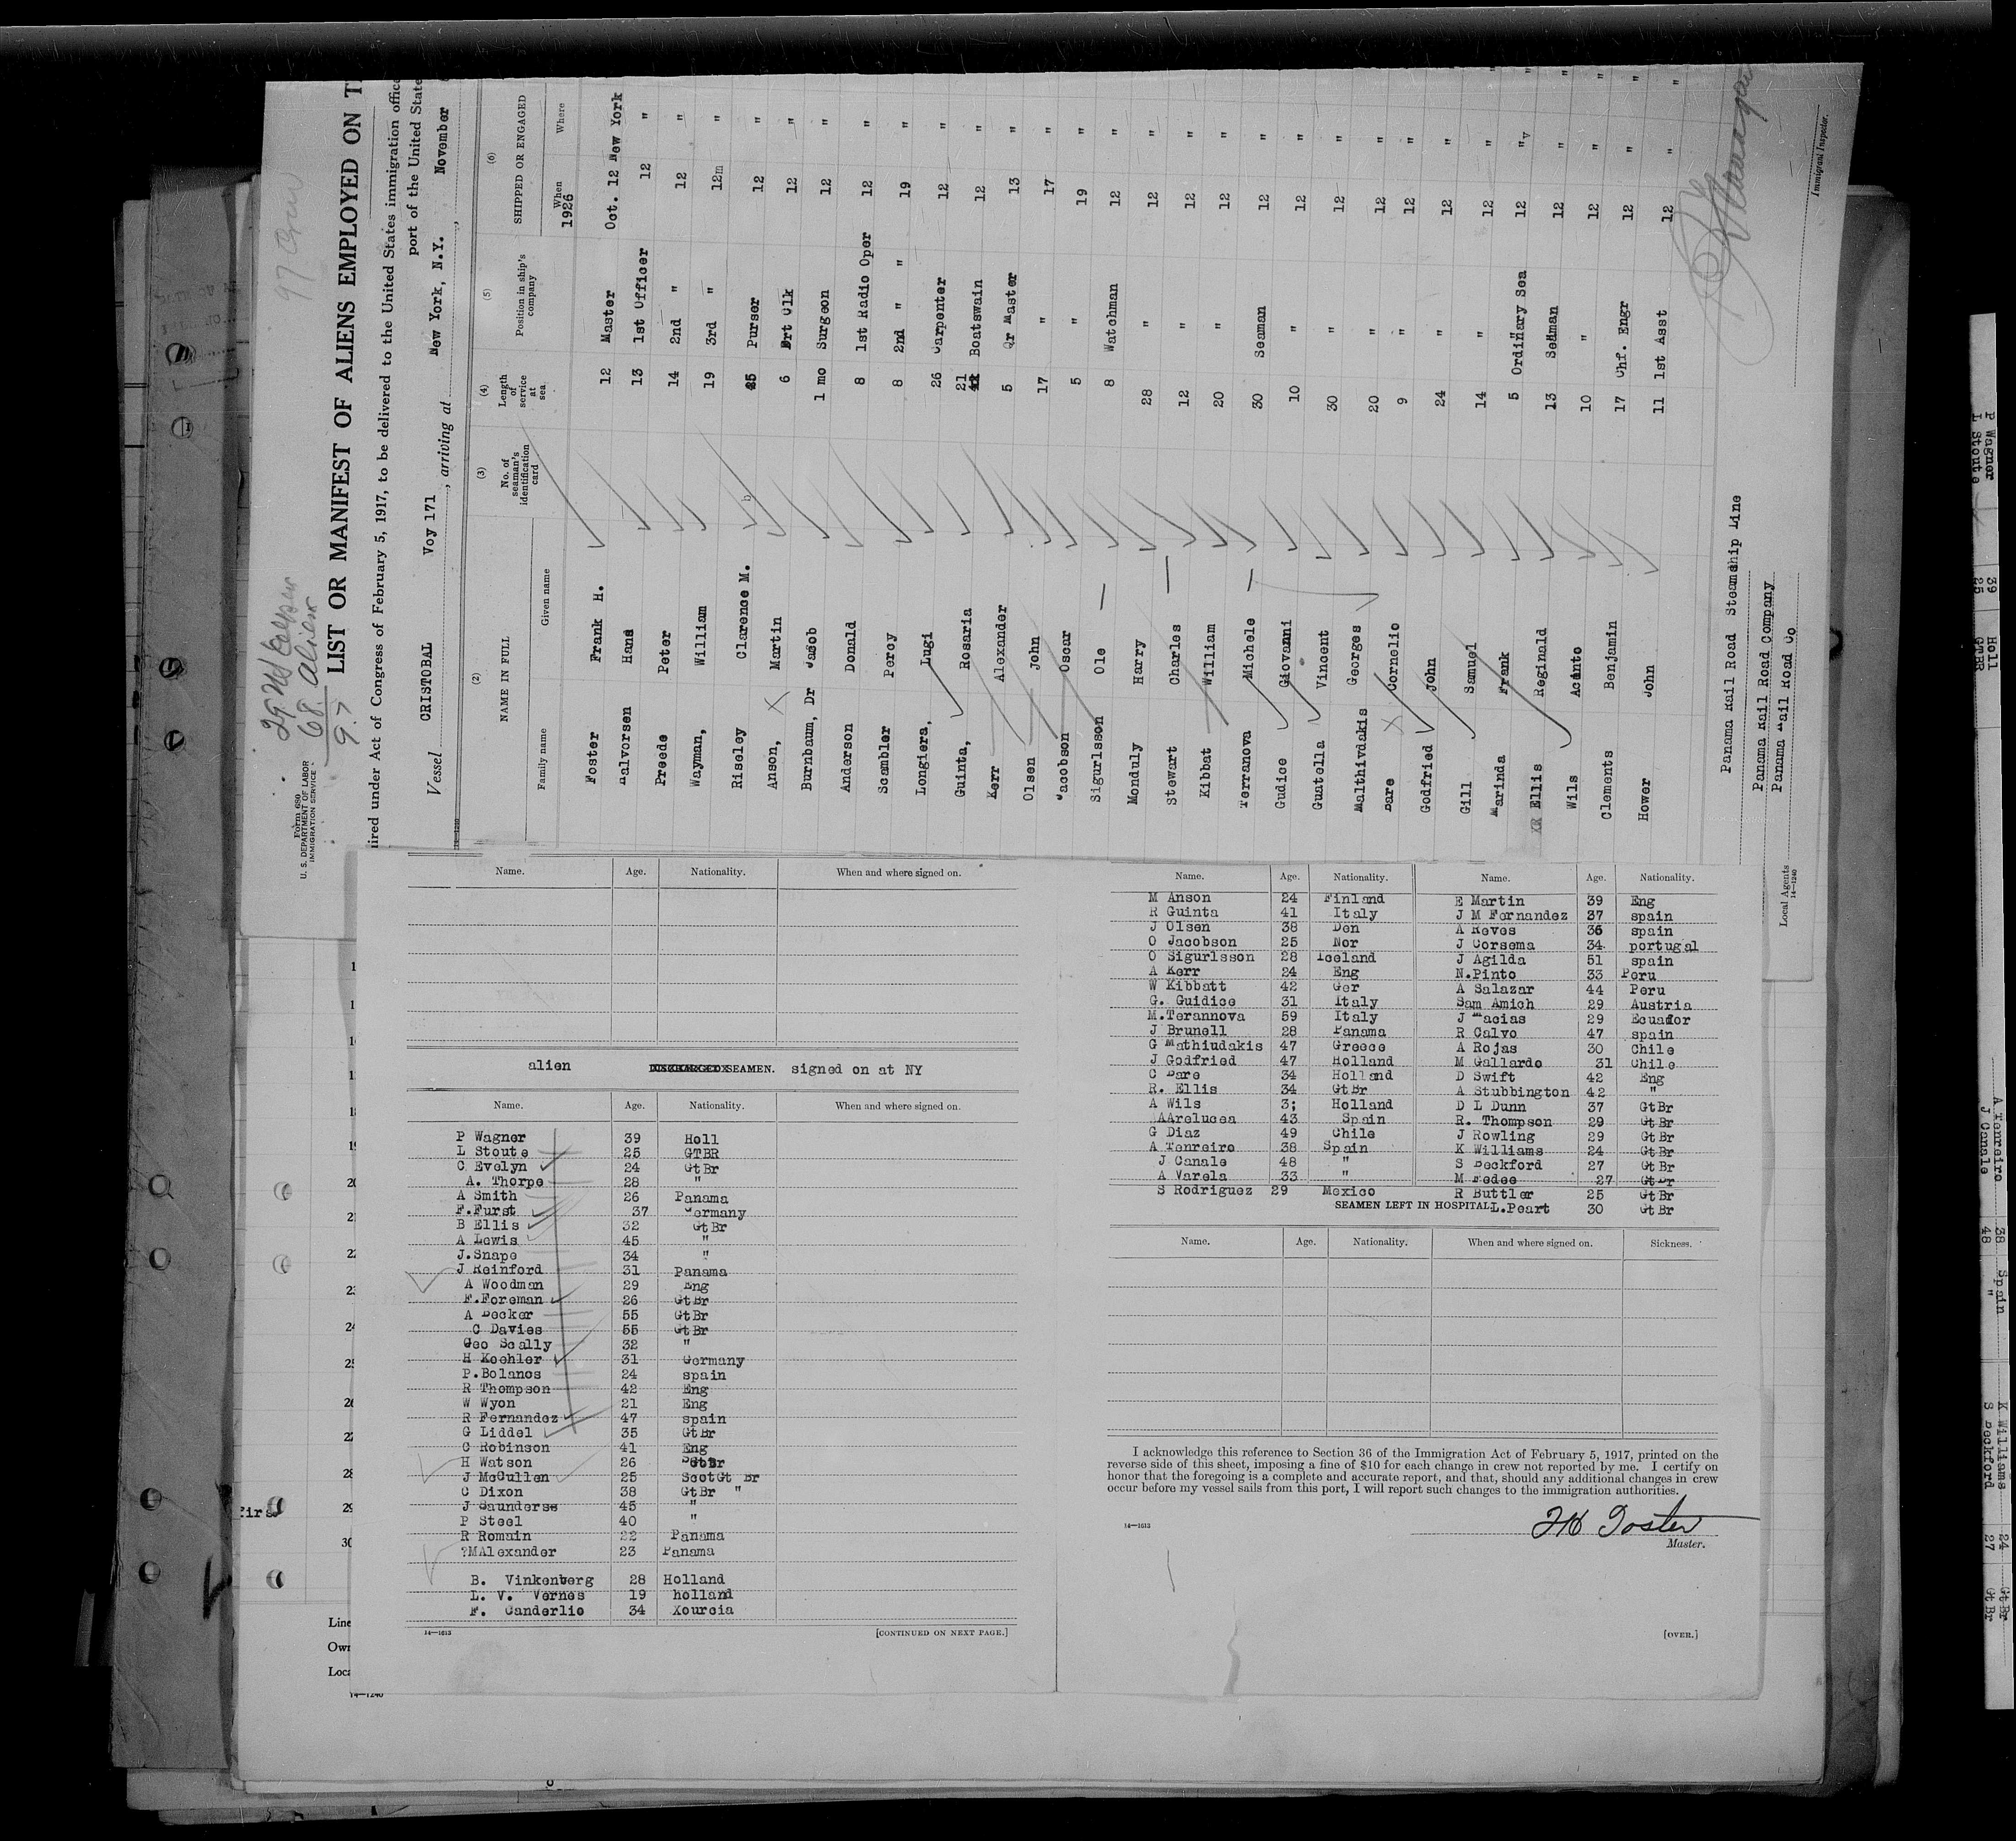 97 Crew
29 US
68 Aliens
97
Form 680
U. S. DEPARTMENT OF LABOR
IMMIGRATION SERVICE
LIST OR MANIFEST OF ALIENS EMPLOYED ON T
ired under Act of Congress of February 5, 1917, to be delivered to the United States immigration offic
port of the United State
Vessel CRISTOBAL Voy 171, arriving at New York, N.Y. November
(2) (3) (4) (5) (6)
NAME IN FULL No. of seaman's identification card Length of service at sea Position in ship's company SHIPPED OR ENGAGED
Family name Given name When Where
1926
Foster Frank H. 12 Master Oct. 12 New York
Halvorsen Hans 13 1st Officer 12 "
Preede Peter 14 2nd " 12 "
Wayman, William 19 3rd " 12m "
Riseley Clarence M. 25 Purser 12 "
Anson, Martin 6 Frt Clk 12 "
Burnbaum, Dr Jacob 1 mo Surgeon 12 "
Anderson Donald 8 1st Radio Oper 12 "
Scambler Percy 8 2nd " " 19 "
Longiera, Lugi 26 Carpenter 12 "
Guinta, Rosaria 21 Boatswain 12 "
Kerr Alexander 5 Qr Master 13 "
Olsen John 17 " 17 "
Jacobson Oscar 5 " 19 "
Sigurlsson Ole 8 Watchman 12 "
Monduly Harry 28 " 12 "
Stewart Charles 12 " 12 "
Kibbat William 20 " 12 "
Terranova Michele 30 Seaman 12 "
Gudice Giovanni 10 " 12 "
Guatella Vincent 30 " 12 "
Malthivdakis Georges 20 " 12 "
Dare Cornelio 9 " 12 "
Godfried John 24 " 12 "
Gill Samuel 14 " 12 "
Marinda Frank 5 Ordinary Sea 12 "
XR Ellis Reginald 13 Seaman 12 "
Wils Acinto 10 " 12 "
Clements Benjamin 17 Chf. Engr 12 "
Hower John 11 1st Asst 12 "
Panama Rail Road Steamship Line
Panama Rail Road Company
Panama Rail Road Co
Local Agents
14—1240
Immigrant Inspector.
Name. Age. Nationality. When and where signed on.
alien DISCHARGED SEAMEN. signed on at NY
Name. Age. Nationality. When and where signed on.
P Wagner 39 Holl
L Stoute 25 GTBR
C Evelyn 24 GtBr
A. Thorpe 28 "
A Smith 26 Panama
F.Furst 37 Germany
B Ellis 32 GtBr
A Lewis 45 "
J.Snape 34 "
J Reinford 31 Panama
A Woodman 29 Eng
F.Foreman 26 GtBr
A Becker 55 GtBr
C Davies 55 GtBr
Geo Scally 32 "
H Koehler 31 Germany
P.Bolanos 24 spain
R Thompson 42 Eng
W Wyon 21 Eng
R Fernandez 47 spain
G Liddel 35 GtBr
C Robinson 41 Eng
H Watson 26 GtBr
J McCullen 25 ScotGt Br
C Dixon 38 GtBr "
J Saunderss 45 "
P Steel 40 "
R Romain 22 Panama
?MAlexander 23 Panama
B. Vinkenberg 28 Holland
L. V. Vernes 19 holland
F. Canderlie 34 Xourcia
14—1613 [CONTINUED ON NEXT PAGE.]
Name. Age. Nationality. Name. Age. Nationality.
M Anson 24 Finland E Martin 39 Eng
R Guinta 41 Italy J M Fernandez 37 spain
J Olsen 38 Den A Reves 36 spain
O Jacobson 25 Nor J Corsema 34 portugal
O Sigurlsson 28 Iceland J Agilda 51 spain
A Kerr 24 Eng N.Pinto 33 Peru
W Kibbatt 42 Ger A Salazar 44 Peru
G. Guidice 31 Italy Sam Amich 29 Austria
M.Terannova 59 Italy J Macias 29 Ecuador
J Brunell 28 Panama R Calvo 47 spain
G Mathiudakis 47 Greece A Rojas 30 Chile
J Godfried 47 Holland M Gallardo 31 Chile
C Dare 34 Holland D Swift 42 Eng
R. Ellis 34 GtBr A Stubbington 42 "
A Wils 3; Holland D L Dunn 37 GtBr
AAArelucea 43 Spain R. Thompson 29 GtBr
G Diaz 49 Chile J Rowling 29 GtBr
A Tenreiro 38 Spain K Williams 24 GtBr
J Canale 48 " S Beckford 27 GtBr
A Varela 33 " M Fedee 27 GtBr
S Rodriguez 29 Mexico R Buttler 25 GtBr
SEAMEN LEFT IN HOSPITAL L.Peart 30 GtBr
Name. Age. Nationality. When and where signed on. Sickness.
I acknowledge this reference to Section 36 of the Immigration Act of February 5, 1917, printed on the
reverse side of this sheet, imposing a fine of $10 for each change in crew not reported by me. I certify on
honor that the foregoing is a complete and accurate report, and that, should any additional changes in crew
occur before my vessel sails from this port, I will report such changes to the immigration authorities.
14—1613 FH Foster
Master.
[OVER.]
firs
20
23
24
25
28
29
30
Line
Own
Loca
14—1240
P Wagner 39 Holl
L Stoute 25 GTBR
A Tenreiro 38 Spain K Williams 24 GtBr
J Canale 48 " S Beckford 27 GtBr